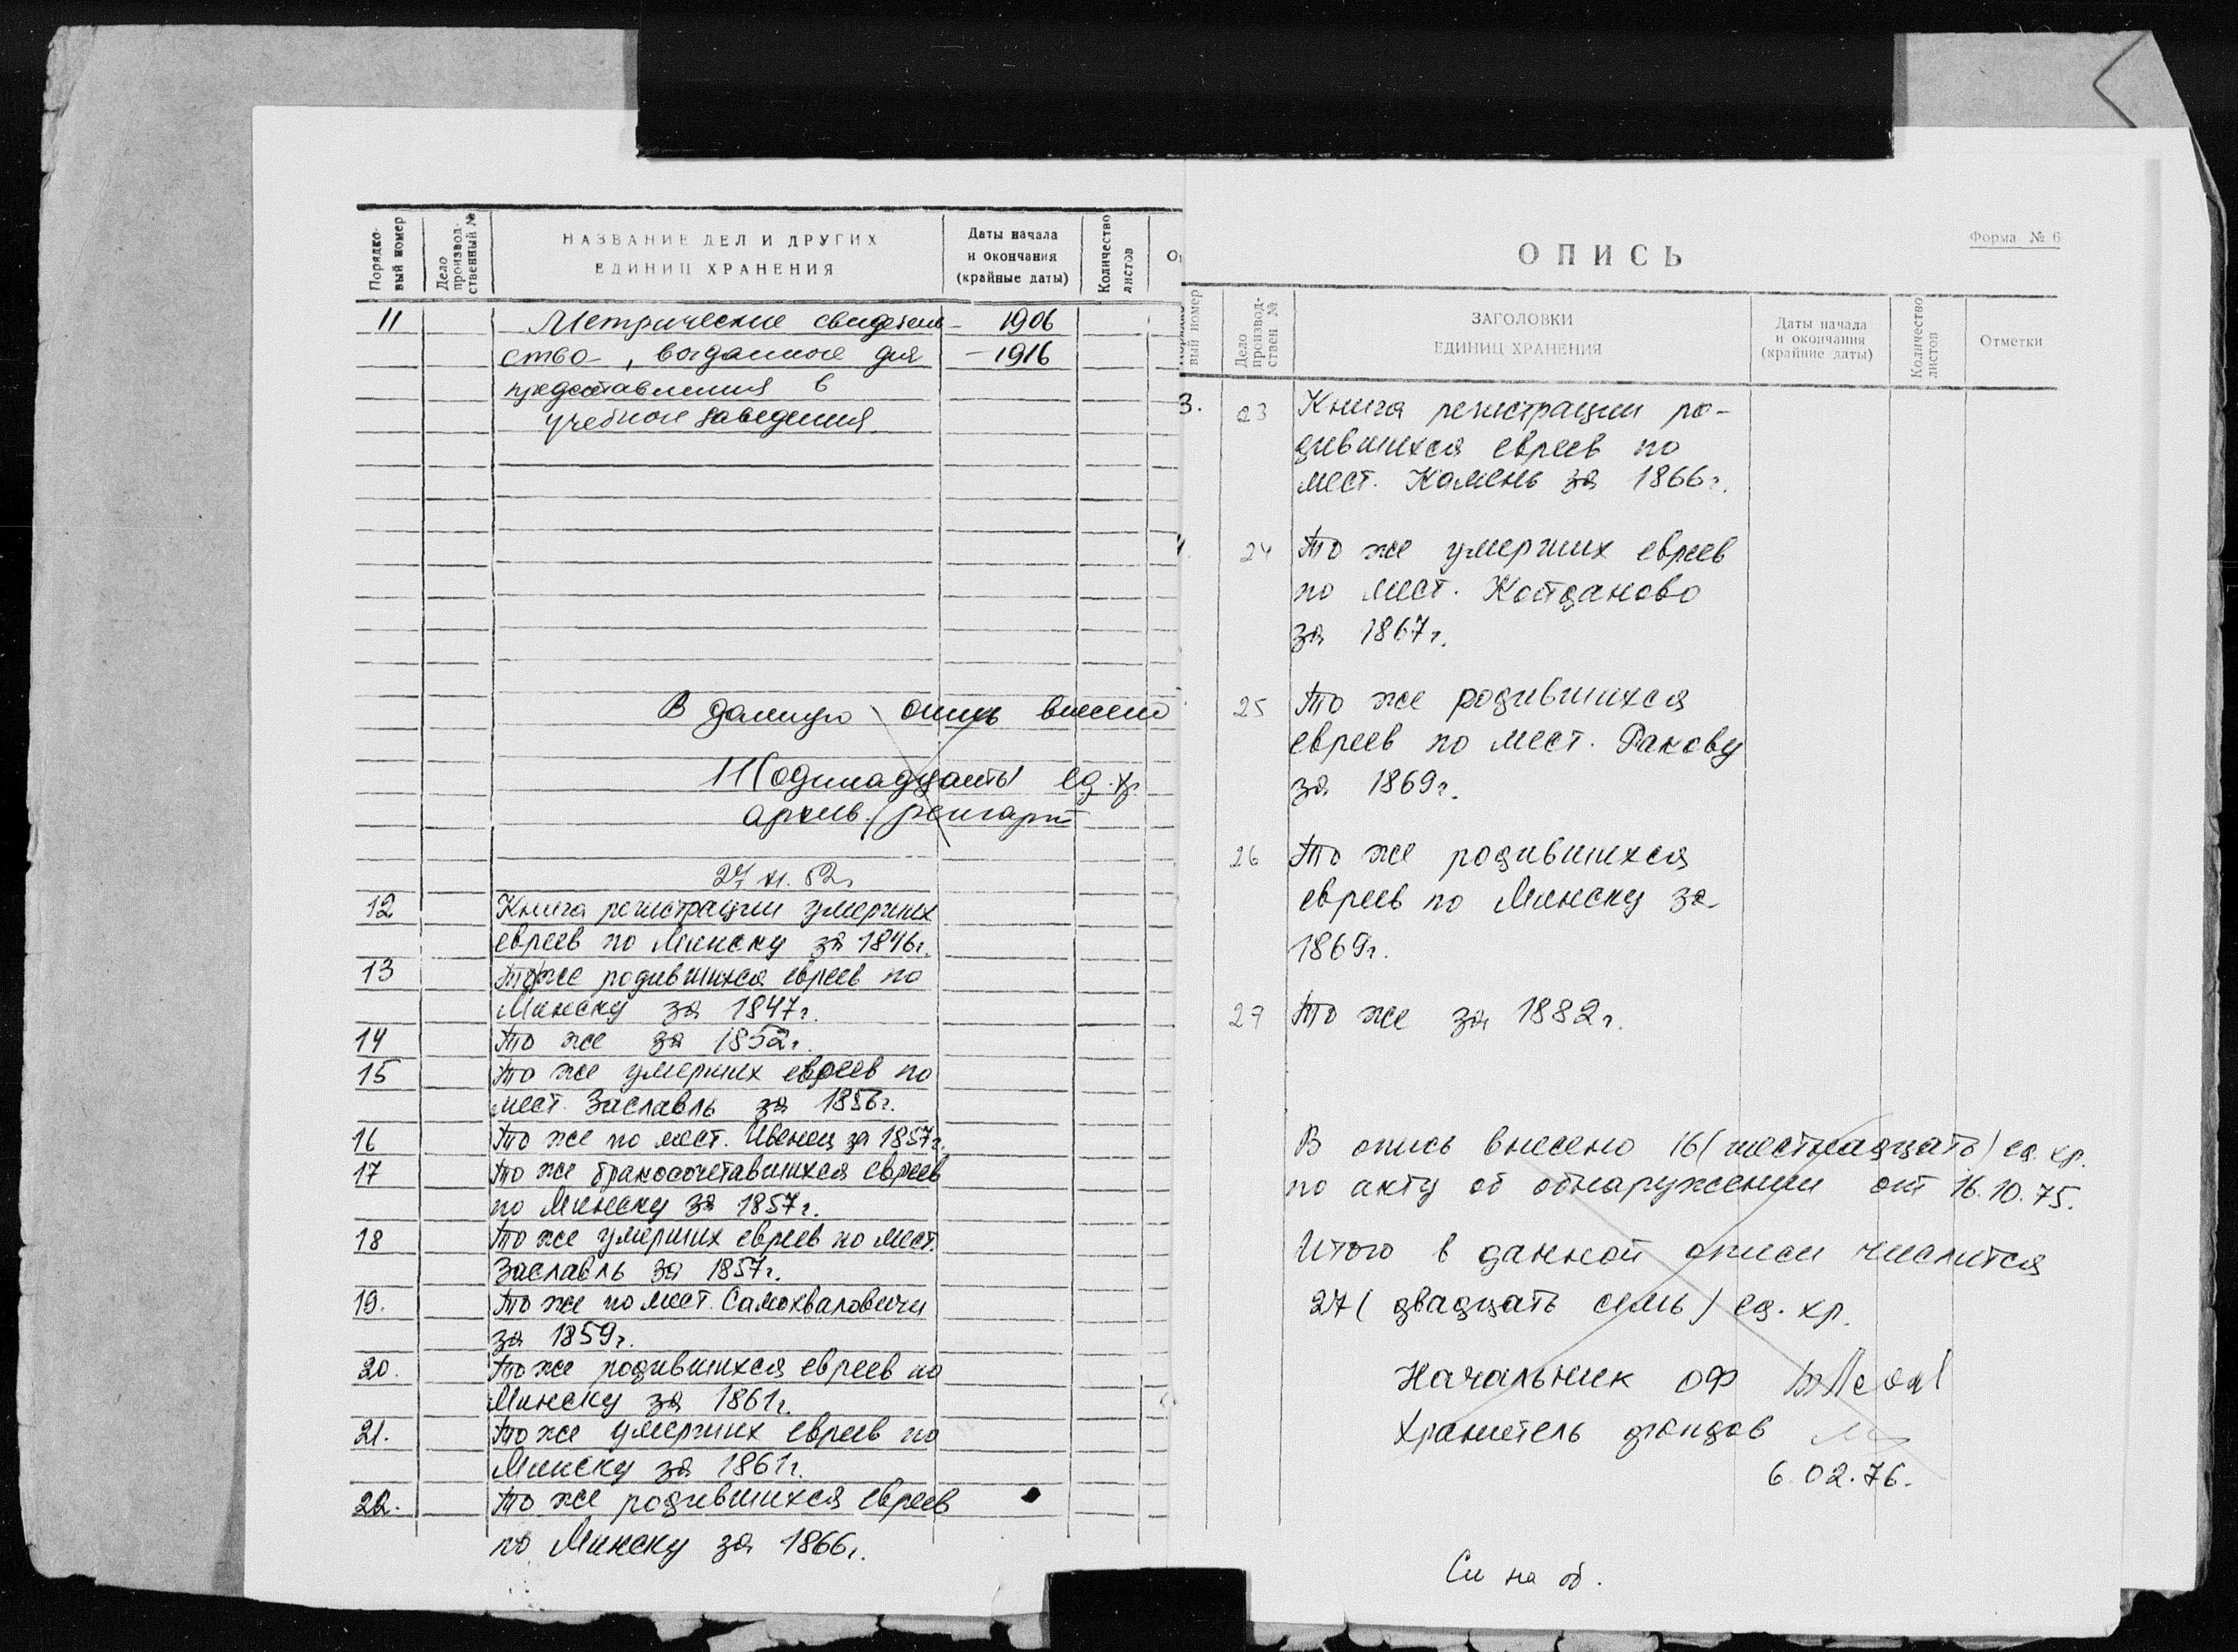 Порядко-
вый номер
Дело
производ-
ственный №
НАЗВАНИЕ ДЕЛ И ДРУГИХ
ЕДИНИЦ ХРАНЕНИЯ
Даты начала
и окончания
(крайные даты)
Количество
листов
11 Метрические свидетель- 1906
ство, выданное для -1916
представления в
учебное заведения
В данную опись внесено
11 (одинадцать) ед. хр.
архив.
24 XI. 52г
12 Книга регистрации умерших
евреев по Минску за 1846г.
13 То же родившихся евреев по
Минску за 1847г.
14 То же за 1852г.
15 То же умерших евреев по
мест. Заславль за 1856г.
16 То же по мест. Ивенец за 1857г.
17 То же бракосочетавшихся евреев
по Минску за 1857г.
18 То же умерших евреев по мест.
Заславль за 1857г.
19. То же по мест. Самохваловичи
за 1859г.
20. То же родившихся евреев по
Минску за 1861г.
21. То же умерших евреев по
Минску за 1861г.
22. То же родившихся евреев
по Минску за 1866г.
Форма № 6
ОПИСЬ
вый номер
Дело
производ-
ствен №
ЗАГОЛОВКИ
ЕДИНИЦ ХРАНЕНИЯ
Даты начала
и окончания
(крайние даты)
Количество
листов
Отметки
3. 23 Книга регистрации ро-
дившихся евреев по
мест. Камень за 1866г.
24 То же умерших евреев
по мест. Койданово
за 1867г.
25 То же родившихся
евреев по мест. Ракову
за 1869г.
26 То же родившихся
евреев по Минску за
1869г.
27 То же за 1882г.
В опись внесено 16 (шестнадцать) ед. хр.
по акту об обнаружении от 16.10.75.
Итого в данной описи числится
27 (двадцать семь) ед. хр.
Начальник ОФ
Хранитель фондов
6.02.76.
См на об.